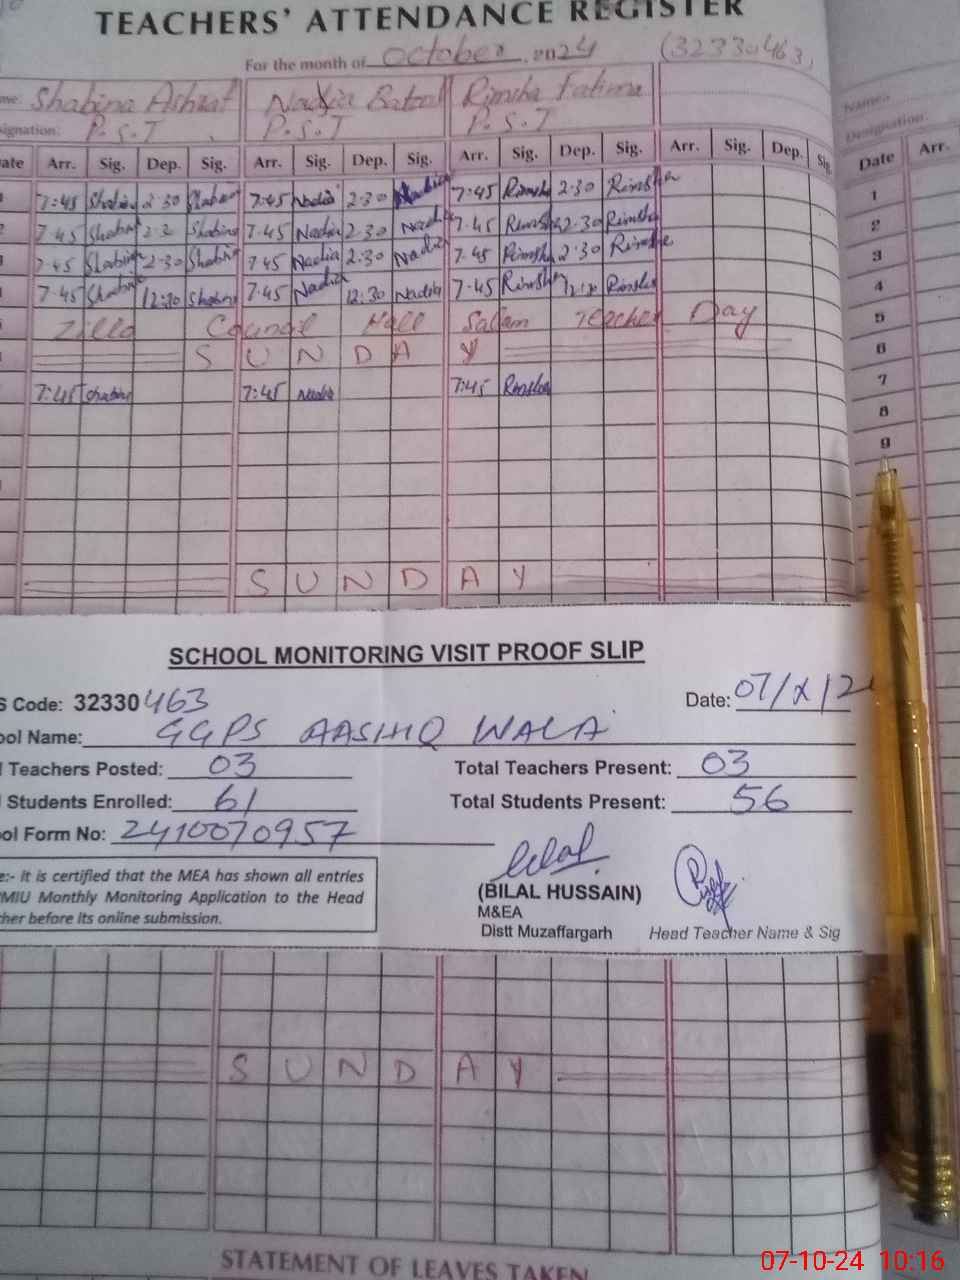 TEACHERS' ATTENDANCE REGISTER
For the month of October, 2024 (32330463)
me: Shabina Ashraf Nadia Batool Rimsha Fatima
signation: P.S.T P.S.T P.S.T
ate Arr. Sig. Dep. Sig. Arr. Sig. Dep. Sig. Arr. Sig. Dep. Sig. Arr. Sig. Dep. Sig
7:45 Shabina 2:30 Shabina 7:45 Nadia 2:30 Nadia 7:45 Rimsha 2:30 Rimsha
7:45 Shabina 2:3 Shabina 7:45 Nadia 2:30 Nadia 7:45 Rimsha 2:30 Rimsha
7:45 Shabina 2:30 Shabina 7:45 Nadia 2:30 Nadia 7:45 Rimsha 2:30 Rimsha
7:45 Shabina 12:30 Shabina 7:45 Nadia 12:30 Nadia 7:45 Rimsha Rimsha
Zilla Council Hall Salam Teacher Day
S U N D A Y
7:45 Shabina 7:45 Nadia 7:45 Rimsha
S U N D A Y
SCHOOL MONITORING VISIT PROOF SLIP
S Code: 32330463 Date: 07/X/2
ool Name: GGPS AASHIQ WALA
l Teachers Posted: 03 Total Teachers Present: 03
l Students Enrolled: 61 Total Students Present: 56
ool Form No: 2410070957
e:- it is certified that the MEA has shown all entries
PMIU Monthly Monitoring Application to the Head
cher before its online submission.
Bilal
(BILAL HUSSAIN)
M&EA
Distt Muzaffargarh
Head Teacher Name & Sig
S U N D A Y
STATEMENT OF LEAVES TAKEN
Name:
Designation:
Date Arr.
1
2
3
4
5
6
7
8
9
07-10-24 10:16